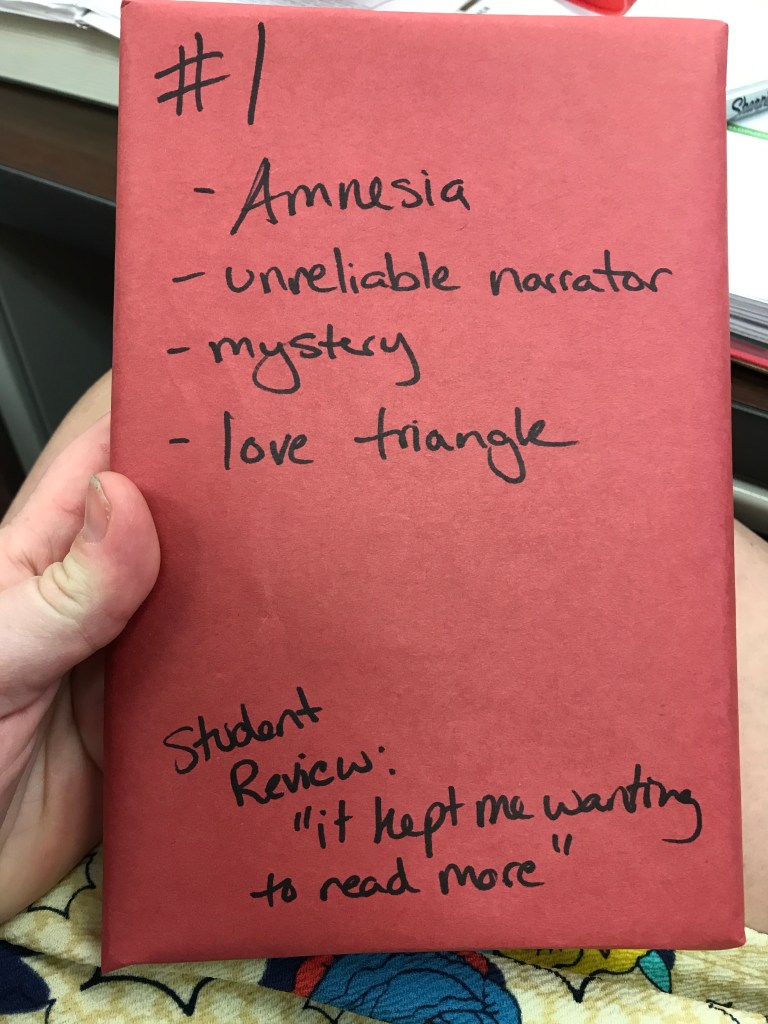 #1
- Amnesia
- unreliable narrator
- mystery
- love triangle
Student
Review:
"it kept me wanting
to read more"
Sharpie